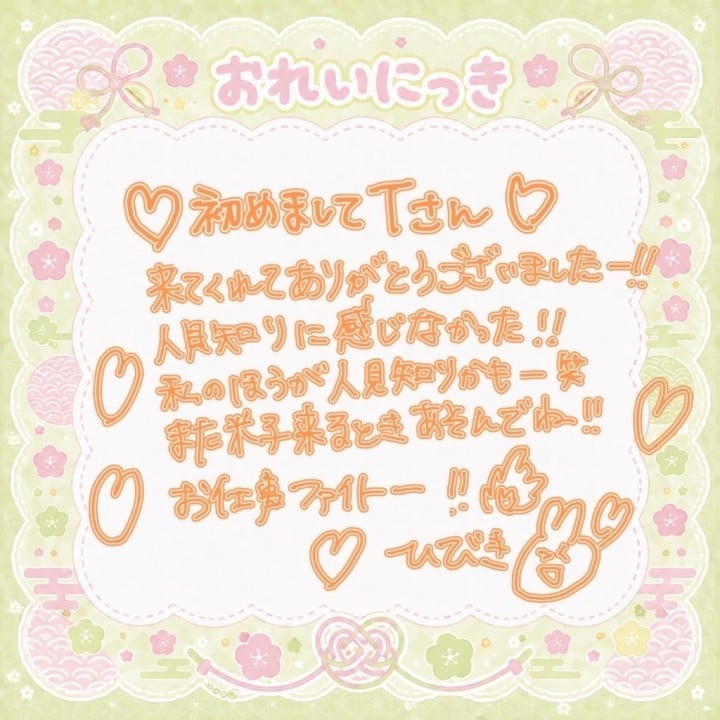 おれいにっき
初めまして Tさん
来てくれてありがとうございましたー!!
人見知りに感じなかった!!
私のほうが人見知りかもー笑
また米子来るときあそんでねー!!
お仕事ファイトー!!
ひびき